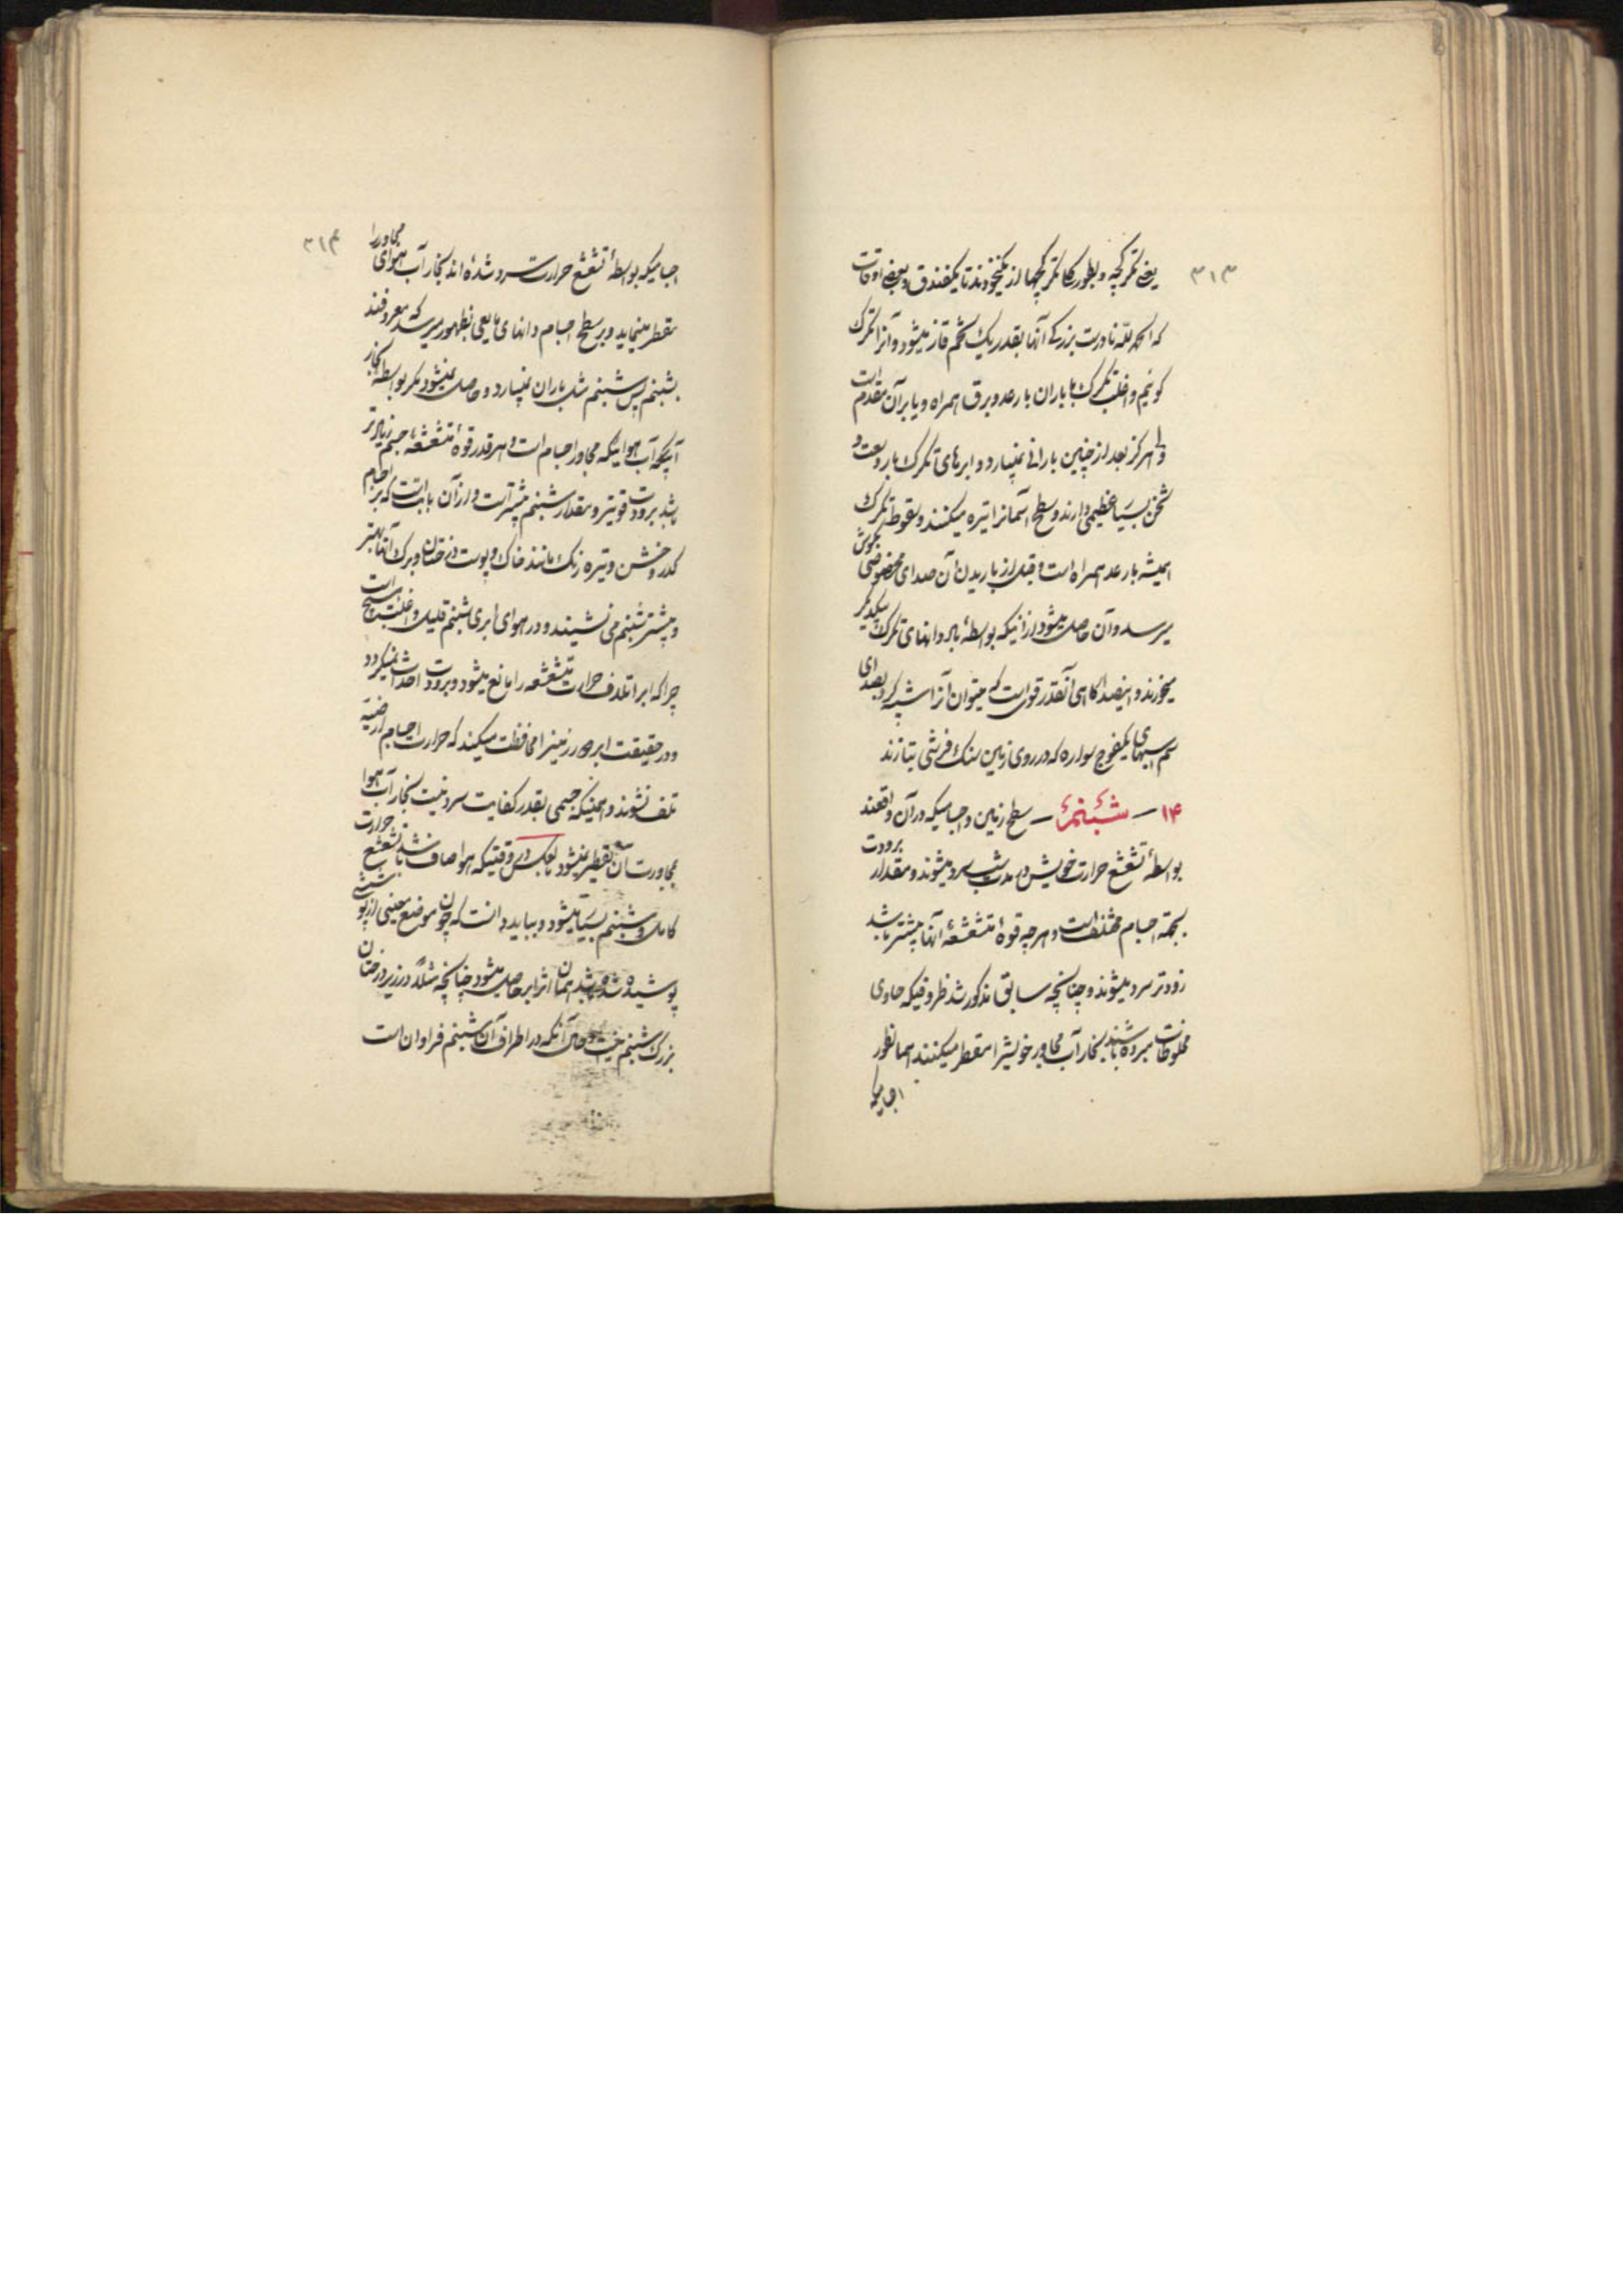 ۳۱۳
یعنی تکرکچه و بطور کلی تکرکچها از یکنخودند تا یکفندق و بعضی اوقات
که الحمدلله نادرست بزرکی آنها بقدر یک تخم قاز میشود و آنرا تکرک
کوئیم و اغلب تکرک با باران با رعد و برق همراه و یا بر آن مقدم است
ولی هرکز بعد از چنین بارانی نمیبارد و ابرهای تکرک بار وسعت و
ثخن بسیار عظیمی دارند و سطح آسمانرا تیره میکنند و سقوط تکرک
همیشه با رعد همراه است و قبل از باریدن آن صدای مخصوصی بکوش
میرسد و آن حاصل میشود از آنیکه بواسطهٔ باد دانهای تکرک بیکدیکر
میخورند و اینصدا کاهی آنقدر قوی است که میتوان آنرا شبیه کرد بصدای
سم اسبهای یکفوج سواره که در روی زمین سنک فرشی بتازند
۱۴ – شبنم – سطح زمین و اجسامیکه در آن واقعند
بواسطهٔ تشعشع حرارت خویش در مدت شب سرد میشوند و مقدار برودت
بجهة اجسام مختلف است و هرچه قوهٔ متشعشعهٔ آنها بیشتر باشد
زودتر سرد میشوند و چنانچه سابق مذکور شد ظروفیکه حاوی
مخلوطات مبرده باشند بخار آب مجاور خویشرا متقطر میکنند همانطور
اجسامیکه
۳۱۴
اجسامیکه بواسطهٔ تشعشع حرارت سرد شده‌اند بخار آب هوای مجاور را
متقطر مینماید و بر سطح اجسام دانهای مایعی بظهور میرسد که معروفند
بشبنم پس شبنم مثل باران نمیبارد و حاصل نمیشود مکر بواسطهٔ بخار
آبیکه هوائیکه مجاور اجسام است و هر قدر قوهٔ متشعشعهٔ جسم زیادتر
باشد برودت قویتر و مقدار شبنم بیشتر است و از آن بابت است که بر اجسام
کدر و خشن و تیره رنک مانند خاک و پوست درختان و برک آنها بهتر
و بیشتر شبنم می نشیند و در هوای ابری شبنم قلیل و اغلب هیچ است
چرا که ابر اتلاف حرارت متشعشعه را مانع میشود و برودت احداث نمیکردد
و در حقیقت ابر زمینرا محافظت میکند که حرارت اجسام ارضیه
تلف نشوند و همینیکه جسمی بقدر کفایت سرد نیست بخار آب هوا
بمجاورت آن متقطر نمیشود بعکس در وقتیکه هوا صاف باشد تشعشع حرارت
کامل و شبنم بسیار میشود و بباید دانست که چون موضع معینی از پوششی
پوشیده شده باشد همان اثر ابر حاصل میشود چنانچه مثلاً در زیر درختان
بزرک شبنم نیست و حال آنکه در اطراف آن شبنم فراوان است